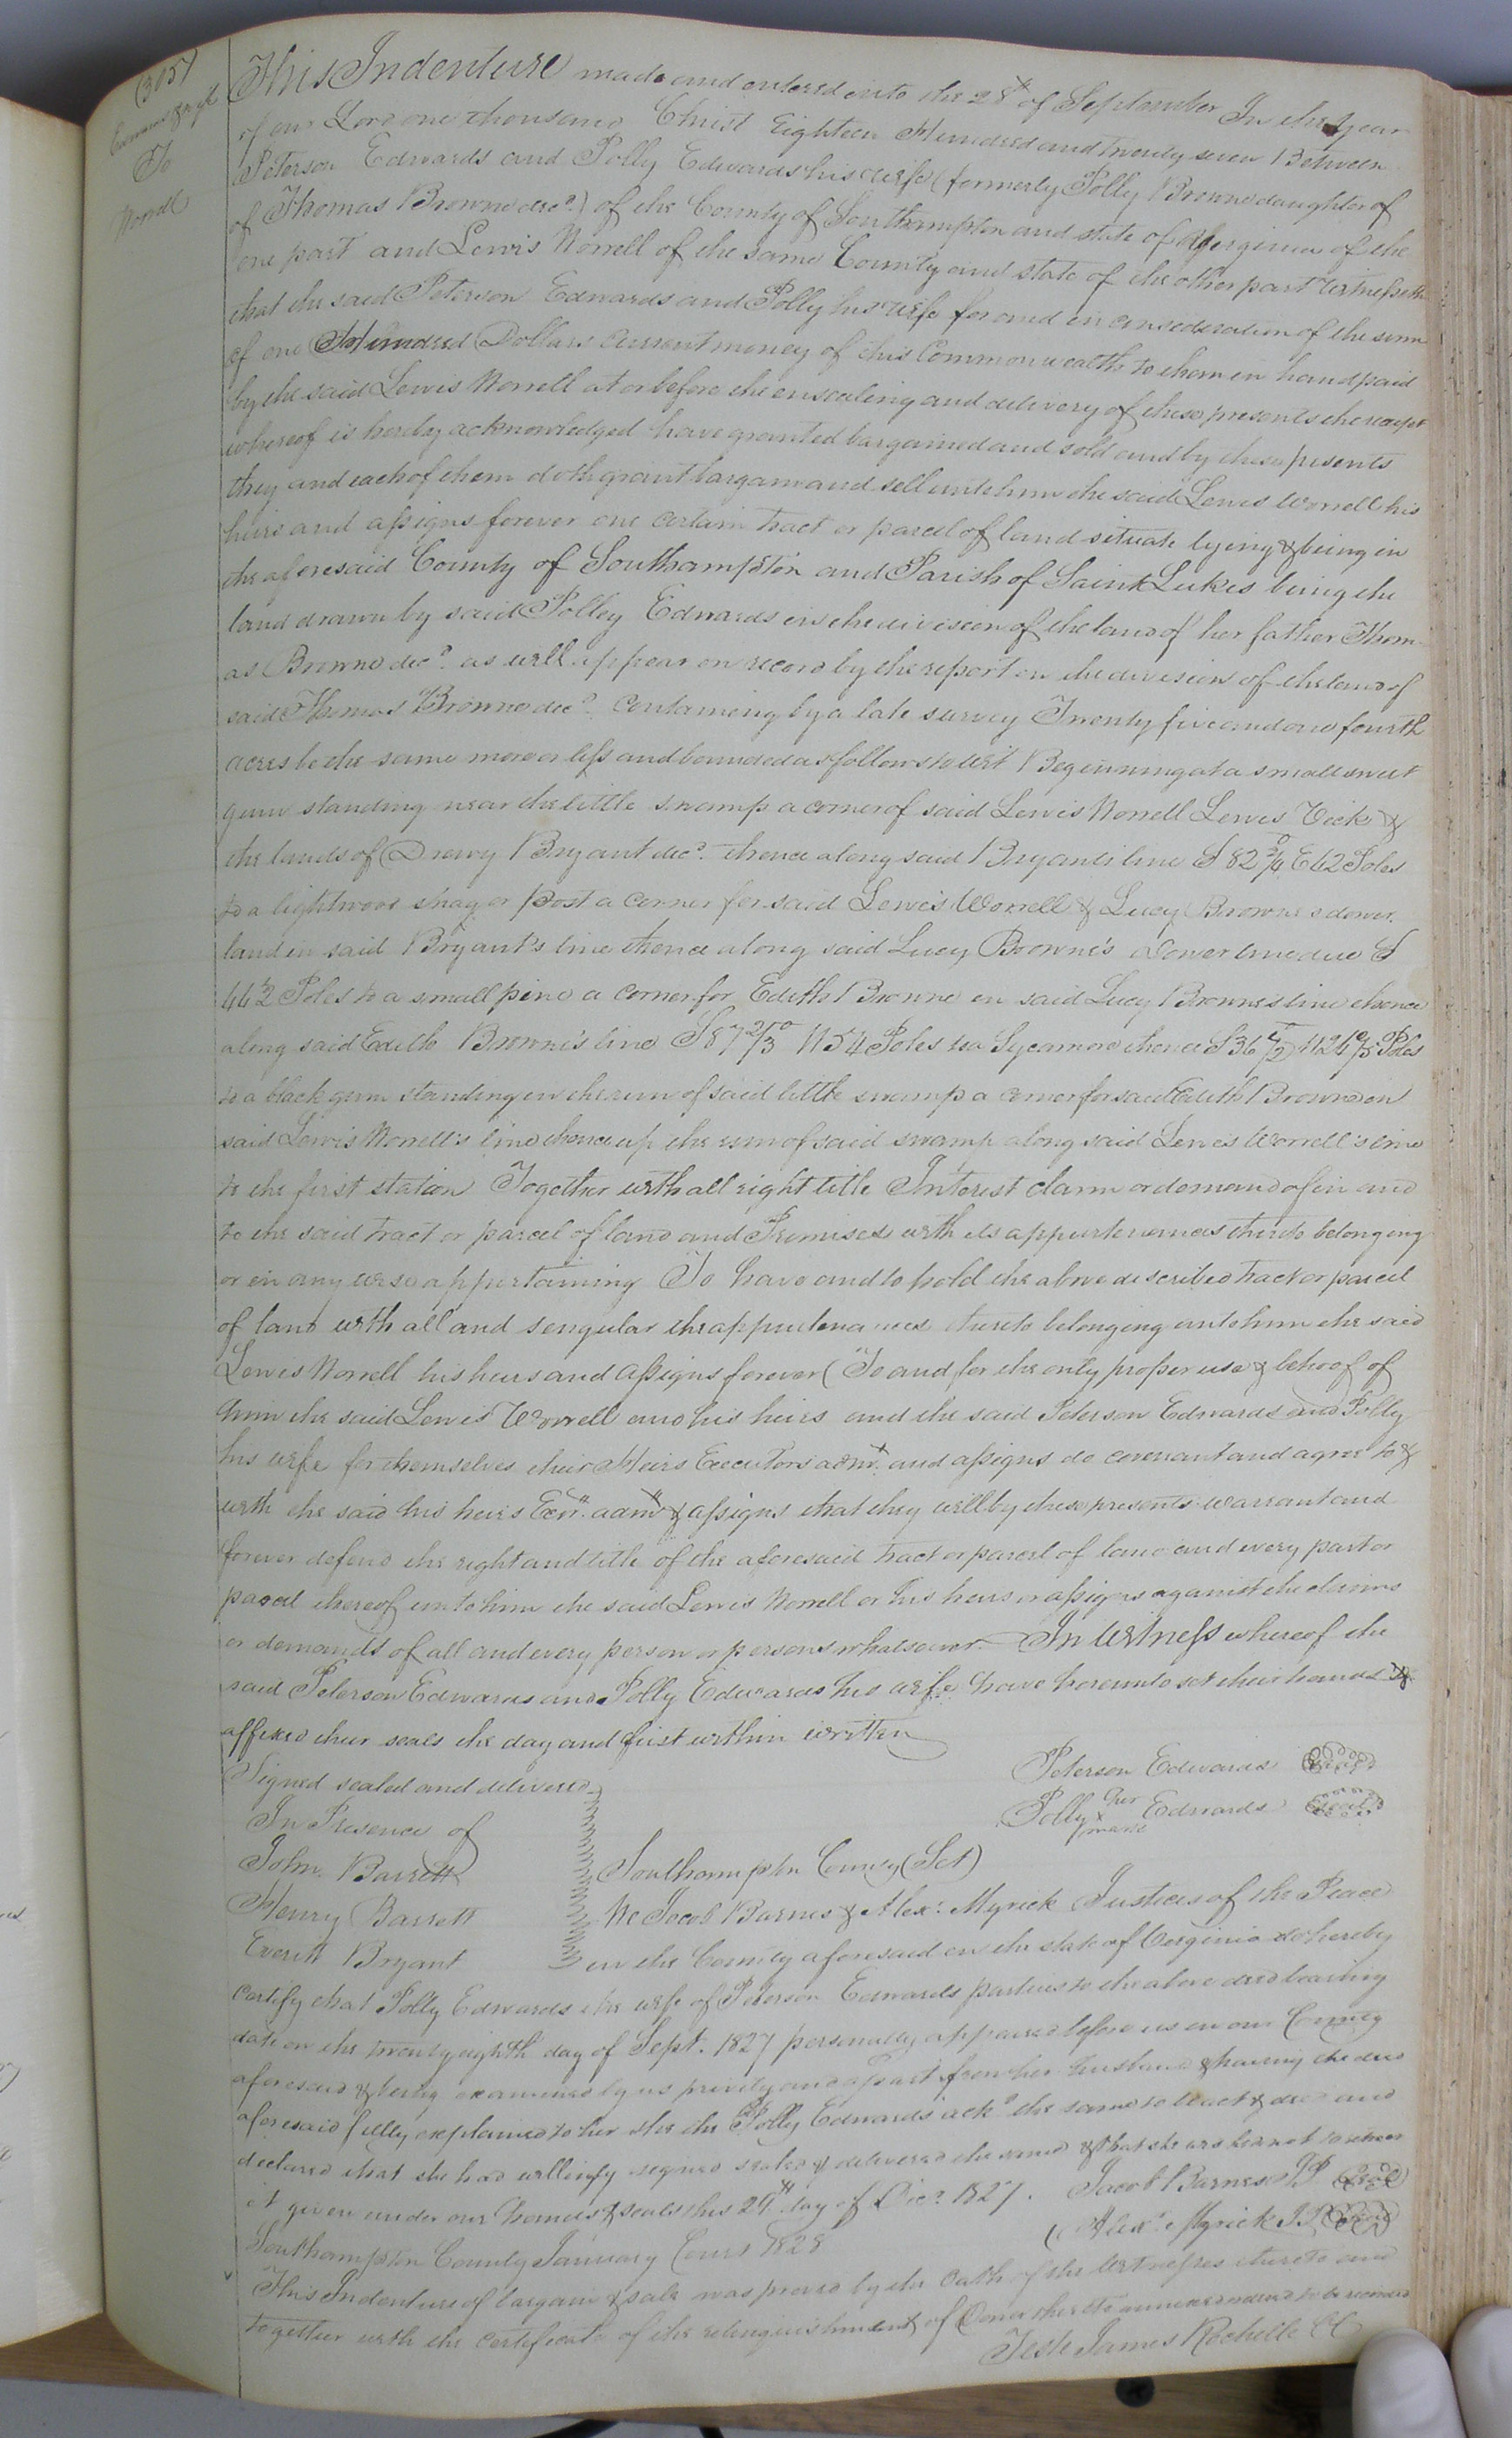 (305)
Edwards & wife
To
Worrell
This Indenture made and entered into the 28th of September In the year
of our Lord one thousand Christ Eighteen Hundred and twenty seven Between
Peterson Edwards and Polly Edwards his wife (formerly Polly Browne daughter of
of Thomas Browne decd.) of the County of Southampton and state of Virginia of the
one part and Lewis Worrell of the same County and state of the other part Witnesseth
that the said Peterson Edwards and Polly his wife for and in consideration of the sum
of one Hundred Dollars current money of this Commonwealth to them in hand paid
by the said Lewis Worrell at or before the ensealing and delivery of these presents the receipt
whereof is hereby acknowledged have granted bargained and sold and by these presents
they and each of them doth grant bargain and sell unto him the said Lewis Worrell his
heirs and assigns forever one certain tract or parcel of land situate lying & being in
the aforesaid County of Southampton and Parish of Saint Lukes being the
land drawn by said Polley Edwards in the division of the land of her father Thom
as Browne decd. as will appear on record by the report on the division of the land of
said Thomas Browne decd. Containing by a late survey Twenty five and one fourth
acres be the same more or less and bounded as follows to wit Beginning at a small sweet
gum standing near the little swamp a corner of said Lewis Worrell Lewis Vick &
the lands of Drewry Bryant decd. thence along said Bryants line S 82 3/4° E 62 Poles
to a lightwood snag or post a corner for said Lewis Worrell & Lucy Browne's dower
land in said Bryant's line thence along said Lucy Browne's Dower line due S
44 1/2 Poles to a small pine a corner for Edith Browne in said Lucy Browne's line thence
along said Edith Browne's line S 87 2/3° W 54 Poles to a Sycamore thence S 36 1/2 W 24 Poles
to a black gum standing in the run of said little swamp a corner for said Edith Browne on
said Lewis Worrell's line thence up the run of said swamp along said Lewis Worrell's line
to the first station Together with all right title Interest claim or demand of in and
to the said tract or parcel of land and Premises with its appurtenances thereto belonging
or in any wise appertaining To have and to hold the above described tract or parcel
of land with all and singular the appurtenances thereto belonging unto him the said
Lewis Worrell his heirs and assigns forever (To and for the only proper use & behoof of
him the said Lewis Worrell and his heirs and the said Peterson Edwards and Polly
his wife for themselves their Heirs Executors admr. and assigns do covenant and agree to &
with the said his heirs Exrs. admrs & assigns that they will by these presents warrant and
forever defend the right and title of the aforesaid tract or parcel of land and every part or
parcel thereof unto him the said Lewis Worrell or his heirs or assigns against the claims
or demands of all and every person or persons whatsoever. In Witness whereof the
said Peterson Edwards and Polly Edwards his wife have hereunto set their hands &
affixed their seals the day and first within written
Peterson Edwards (Seal)
Polly her x mark Edwards (Seal)
Signed sealed and delivered
In Presence of
John Barrett
Henry Barrett
Everitt Bryant
Southampton County (Sct)
We Jacob Barnes & Alexr. Myrick Justices of the Peace
in the County aforesaid in the state of Virginia do hereby
certify that Polly Edwards the wife of Peterson Edwards parties to the above deed bearing
date on the twenty eighth day of Sept. 1827 personally appeared before us in our County
aforesaid & being examined by us privily and apart from her husband & having the deed
aforesaid fully explained to her she the Polly Edwards ackd the same to be act & deed and
declared that she had willingly signed sealed & delivered the same & that she wished not to retract
it given under our hands & seals this 29th day of Decr. 1827. Jacob Barnes J.P. (Seal)
Alexr. Myrick J.P. (Seal)
Southampton County January Court 1828
This Indenture of bargain & sale was proved by the Oath of the Witnesses thereto and
together with the certificate of the relinquishment of Dower thereto annexed ordered to be recorded
Teste James Rochelle CC